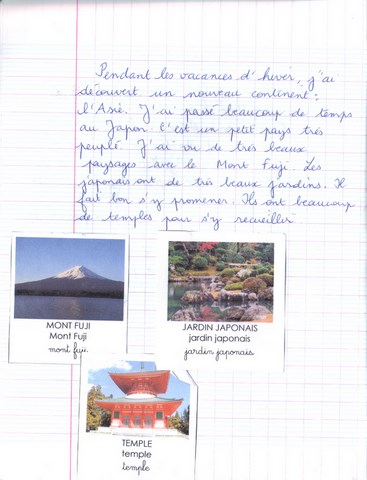 Pendant les vacances d'hiver, j'ai
découvert un nouveau continent :
l'Asie. J'ai passé beaucoup de temps
au Japon. C'est un petit pays très
peuplé. J'ai vu de très beaux
paysages avec le Mont Fuji. Les
japonais ont de très beaux jardins. Il
fait bon s'y promener. Ils ont beaucoup
de temples pour s'y recueillir.
MONT FUJI
Mont Fuji
mont fuji
JARDIN JAPONAIS
jardin japonais
jardin japonais
TEMPLE
temple
temple